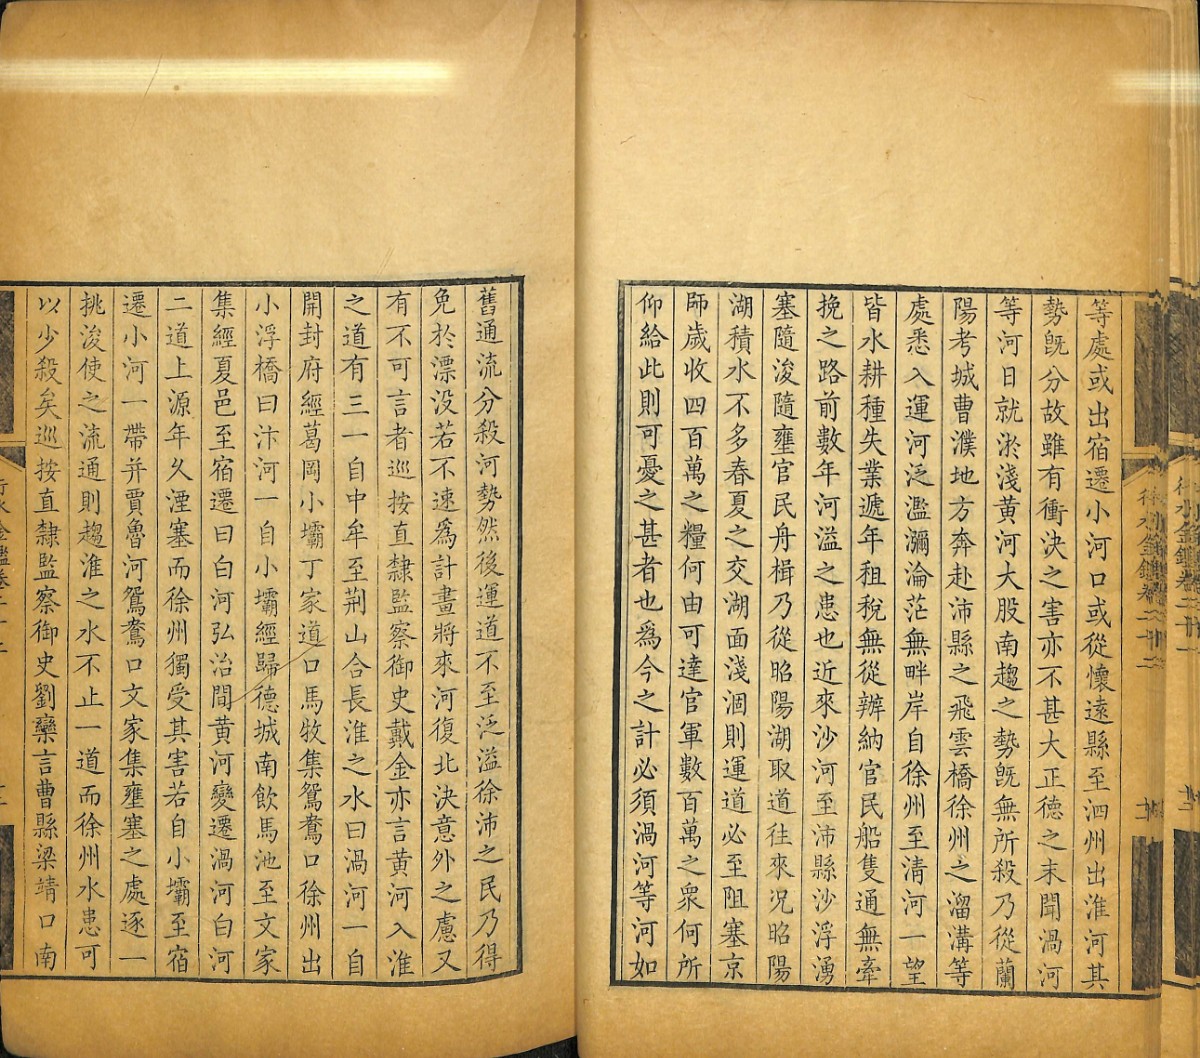 等處或出宿遷小河口或從懷遠縣至泗州出淮河其
勢旣分故雖有衝決之害亦不甚大正德之末聞渦河
等河日就淤淺黄河大股南趨之勢旣無所殺乃從蘭
陽考城曹濮地方奔赴沛縣之飛雲橋徐州之溜溝等
處悉入運河泛濫瀰淪茫無畔岸自徐州至清河一望
皆水耕種失業遞年租稅無從辦納官民船隻通無牽
挽之路前數年河溢之患也近來沙河至沛縣沙浮湧
塞隨浚隨壅官民舟楫乃從昭陽湖取道往來況昭陽
湖積水不多春夏之交湖面淺涸則運道必至阻塞京
師歲收四百萬之糧何由可達官軍數百萬之衆何所
仰給此則可憂之甚者也爲今之計必須渦河等河如
舊通流分殺河勢然後運道不至泛溢徐沛之民乃得
免於漂没若不速爲計畫將來河復北決意外之慮又
有不可言者巡按直隸監察御史戴金亦言黄河入淮
之道有三一自中牟至荆山合長淮之水曰渦河一自
開封府經葛岡小壩丁家道口馬牧集鴛鴦口徐州出
小浮橋曰汴河一自小壩經歸德城南飲馬池至文家
集經夏邑至宿遷曰白河弘治間黄河變遷渦河白河
二道上源年久湮塞而徐州獨受其害若自小壩至宿
遷小河一帶并賈魯河鴛鴦口文家集壅塞之處逐一
挑浚使之流通則趨淮之水不止一道而徐州水患可
以少殺矣巡按直隸監察御史劉欒言曹縣梁靖口南